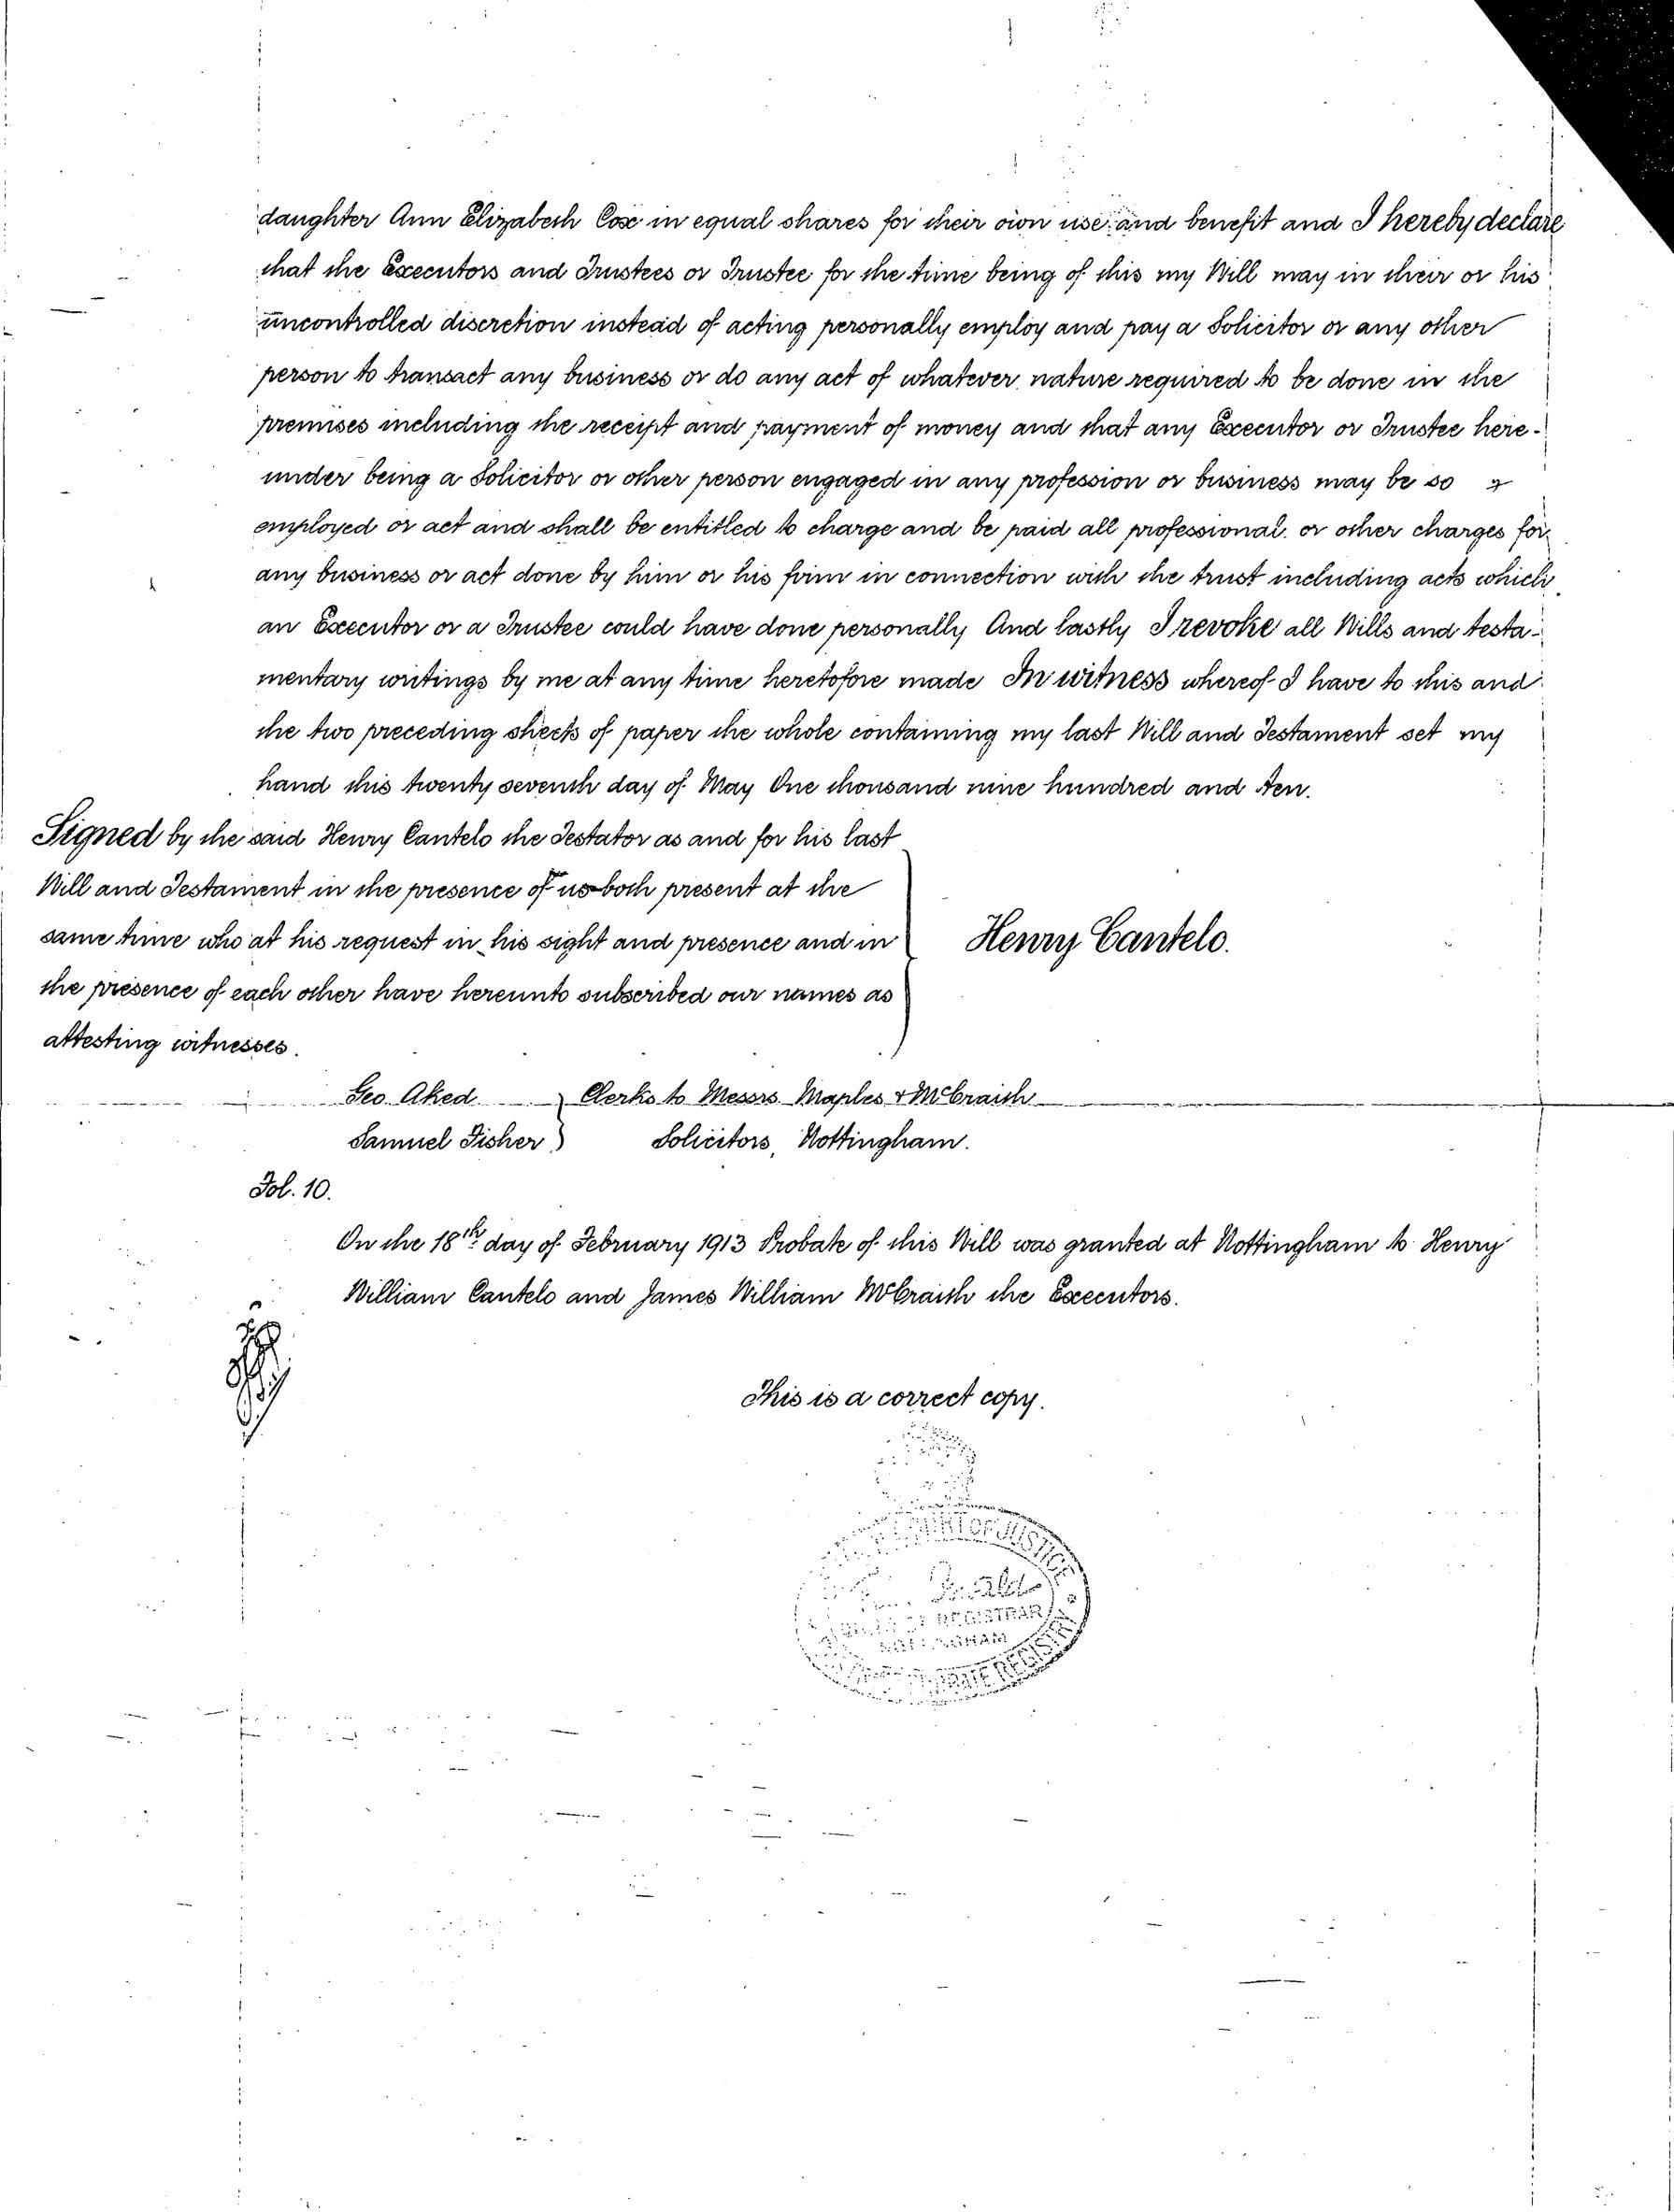 daughter Ann Elizabeth Cox in equal shares for their own use and benefit and I hereby declare
that the Executors and Trustees or Trustee for the time being of this my Will may in their or his
uncontrolled discretion instead of acting personally employ and pay a Solicitor or any other
person to transact any business or do any act of whatever nature required to be done in the
premises including the receipt and payment of money and that any Executor or Trustee here-
under being a Solicitor or other person engaged in any profession or business may be so
employed or act and shall be entitled to charge and be paid all professional or other charges for
any business or act done by him or his firm in connection with the trust including acts which
an Executor or a Trustee could have done personally And lastly I revoke all Wills and testa-
mentary writings by me at any time heretofore made In witness whereof I have to this and
the two preceding sheets of paper the whole containing my last Will and Testament set my
hand this twenty seventh day of May One thousand nine hundred and ten.
Signed by the said Henry Cantelo the Testator as and for his last
Will and Testament in the presence of us both present at the
same time who at his request in his sight and presence and in
the presence of each other have hereunto subscribed our names as
attesting witnesses.
Henry Cantelo.
Geo. Aked } Clerks to Messrs Maples & McCraith
Samuel Fisher } Solicitors, Nottingham.
Fol. 10.
On the 18th day of February 1913 Probate of this Will was granted at Nottingham to Henry
William Cantelo and James William McCraith the Executors.
This is a correct copy.
OF JUSTICE
REGISTRAR